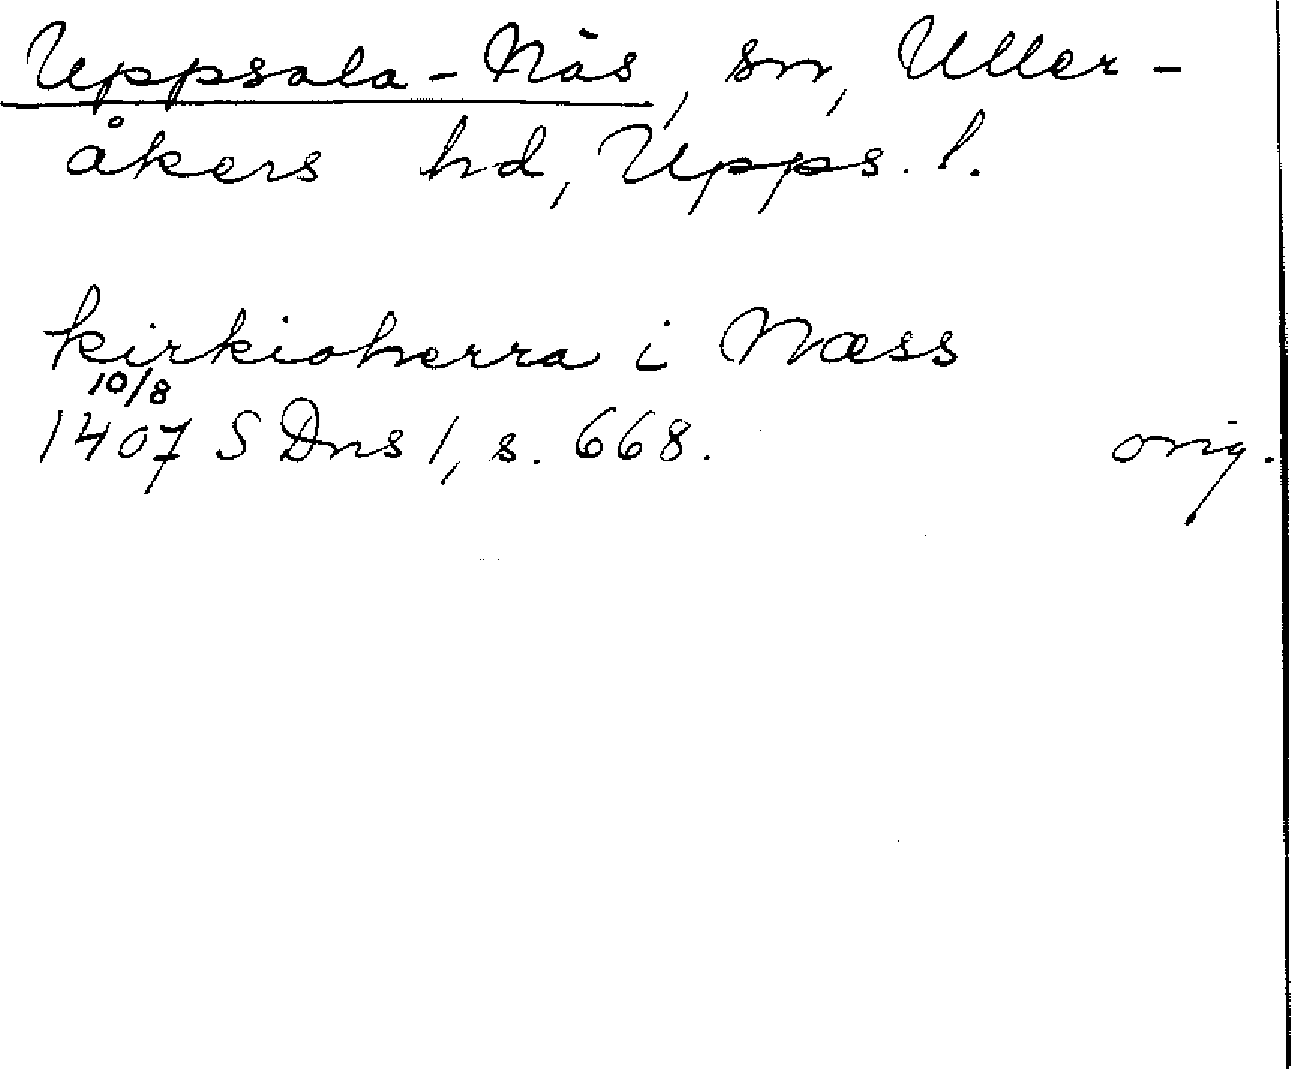 Uppsala-Näs, sn, Uller-
åkers hd, Upps. l.
kirkioherra i Næss
10/8
1407 SDns 1, s. 668. orig.